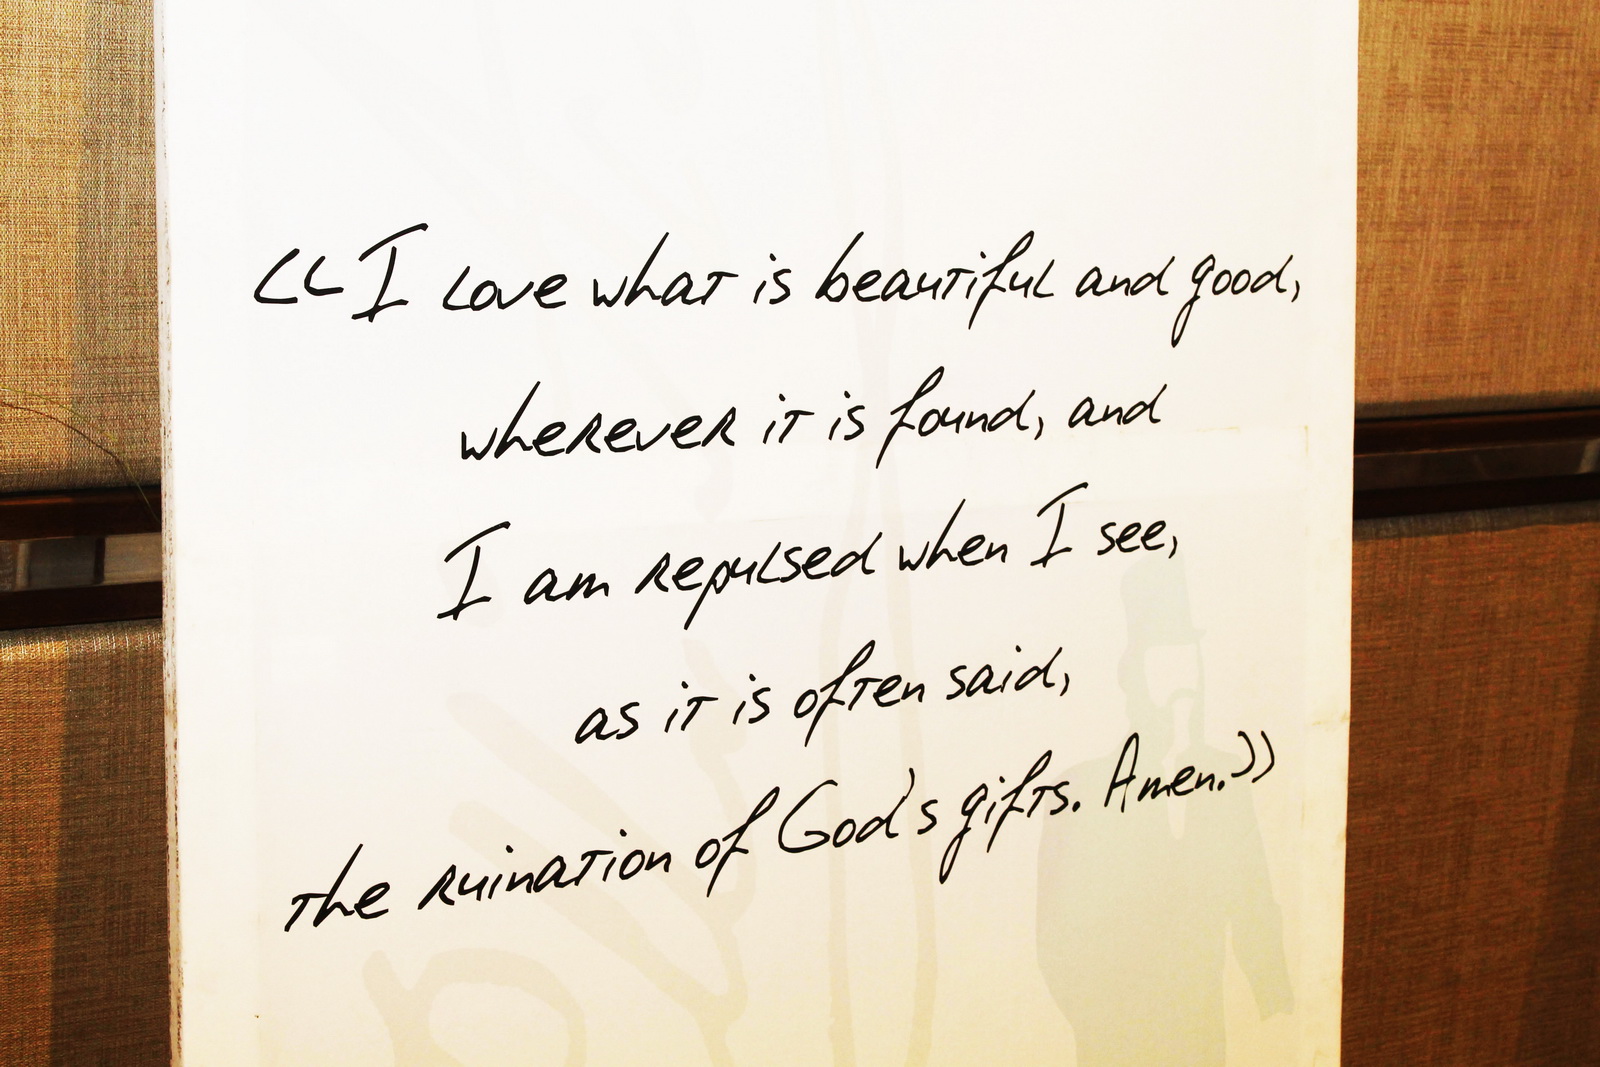 “I love what is beautiful and good,
wherever it is found, and
I am repulsed when I see,
as it is often said,
the ruination of God's gifts. Amen.”